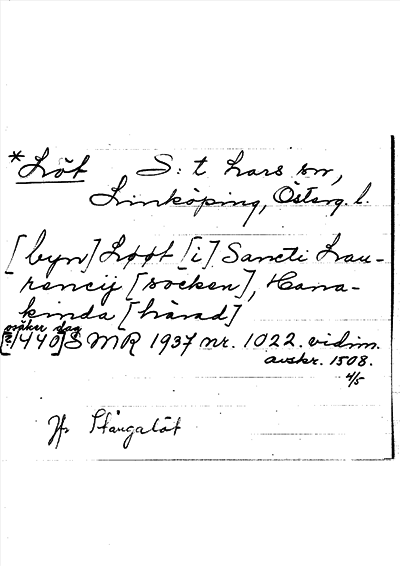 *Löt S:t Lars sn,
Linköping, Österg. l.
[byn] Løøt [i] Sancti Lau-
rencij [socken], Hana-
kinda [härad]
osäker dag
[?1440] SMR 1937 nr. 1022. vidim.
avskr. 1508.
4/5
Jfr Stångalöt